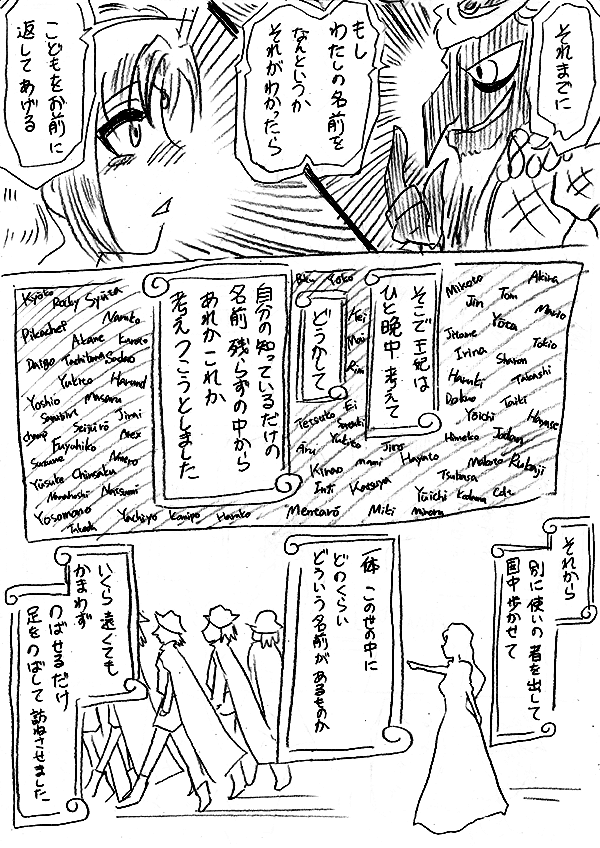 それまでに
もし
わたしの名前を
なんというか
それがわかったら
こどもをお前に
返してあげる
そこで王妃は
ひと晩中 考えて
どうかして
自分の知っているだけの
名前 残らずの中から
あれかこれか
考えつこうとしました
Mikoto
Akira
Jin
Tom
Mario
Yota
Tokio
Irina
Sharon
Haruki
Takashi
Taiki
Yoichi
Hanase
Yoko
Rin
Tetsuto
Ei
Satsuki
Yukito
Aru
Jiro
Kirao
mami
Hayato
Makoto
Tsubasa
Inti
Katsuya
Yuichi
Kodama
Mentaro
Miki
Minoru
Kyoko
Rocky
Naruko
Pikachef
Akane
Kaneto
Daigo
Tachibana
Sadao
Yukiko
Yoshio
Masaru
Jirai
Champ
Seijiro
Alex
Fuyuhiko
Suzume
Yusuke
Chinsaku
Natsumi
Yosomono
Yachiyo
Kanipo
Hanako
Takeda
それから
別に使いの者を出して
国中歩かせて
一体 この世の中に
どのくらい
どういう名前があるものか
いくら遠くても
かまわず
のばせるだけ
足をのばして 訪ねさせました